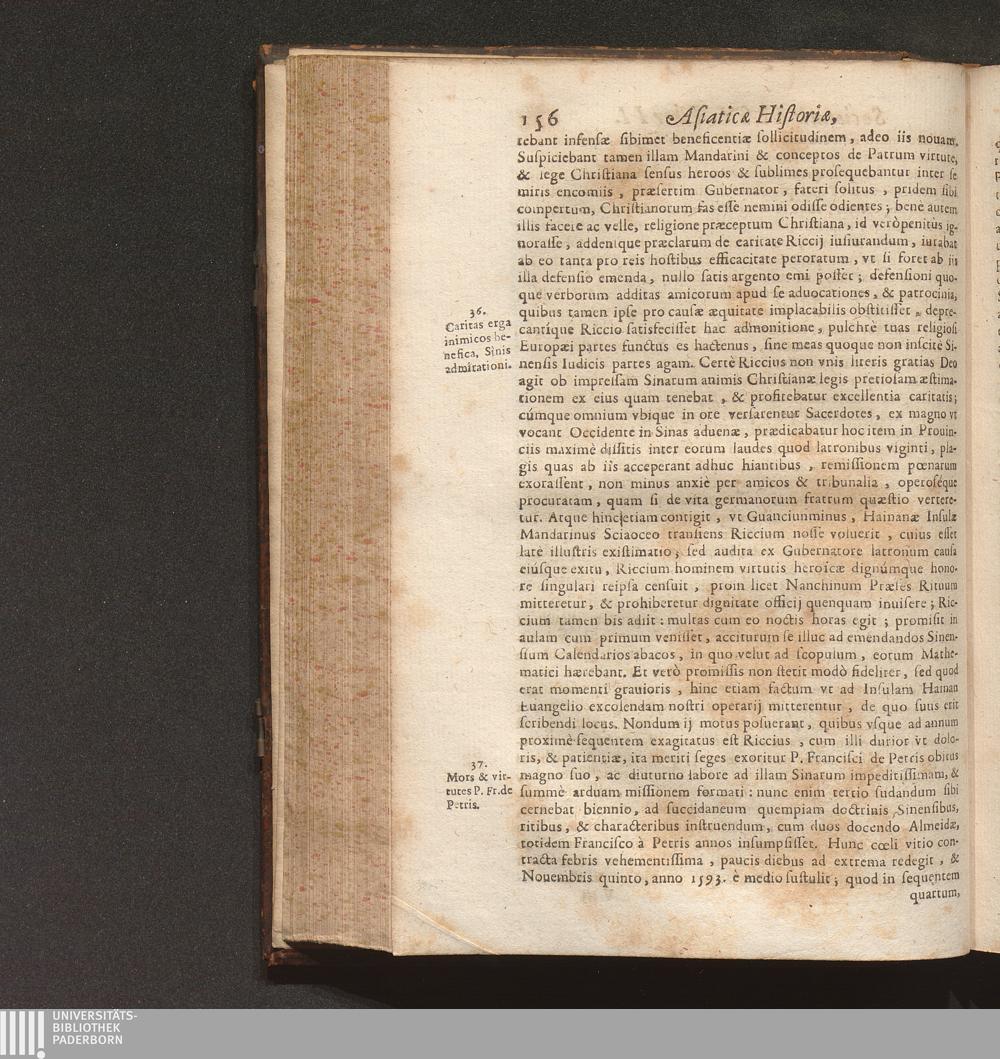 156 Asiaticæ Historiæ,
tebant infensæ sibimet beneficentiæ sollicitudinem, adeo iis nouam.
Suspiciebant tamen illam Mandarini & conceptos de Patrum virtute,
& lege Christiana sensus heroos & sublimes prosequebantur inter se
miris encomiis, præsertim Gubernator, fateri solitus, pridem sibi
compertum, Christianorum fas esse nemini odisse odientes; bene autem
illis facere ac velle, religione præceptum Christiana, id verò penitùs ig-
norasse, addenique præclarum de caritate Riccij iusiurandum, iurabat
ab eo tanta pro reis hostibus efficacitate peroratum, vt si foret ab iis
illa defensio emenda, nullo satis argento emi posset; defensioni quo-
que verborum additas amicorum apud se aduocationes, & patrocinia,
36.
Caritas erga
inimicos be-
nefica, Sinis
admirationi.
quibus tamen ipse pro causæ æquitate implacabilis obstitisset, depre-
cantíque Riccio satisfecisset hac admonitione, pulchrè tuas religiosi
Europæi partes functus es hactenus, sine meas quoque non inscitè Si-
nensis Iudicis partes agam. Certè Riccius non vnis literis gratias Deo
agit ob impressam Sinarum animis Christianæ legis pretiosam æstima-
tionem ex eius quam tenebat, & profitebatur excellentia caritatis;
cúmque omnium vbique in ore versarentur Sacerdotes, ex magno vt
vocant Occidente in Sinas aduenæ, prædicabatur hoc item in Prouin-
ciis maximè dissitis inter eorum laudes quod latronibus viginti, pla-
gis quas ab iis acceperant adhuc hiantibus, remissionem pœnarum
exorassent, non minus anxiè per amicos & tribunalia, operoséque
procuratam, quam si de vita germanorum fratrum quæstio vertere-
tur. Atque hinc etiam contigit, vt Guanciunminus, Hainanæ Insulæ
Mandarinus Sciaoceo transiens Riccium nosse voluerit, cuius esset
latè illustris existimatio; sed audita ex Gubernatore latronum causa
eiúsque exitu, Riccium hominem virtutis heroicæ dignúmque hono-
re singulari reipsa censuit, proin licet Nanchinum Præses Rituum
mitteretur, & prohiberetur dignitate officij quenquam inuisere; Ric-
cium tamen bis adiit: multas cum eo noctis horas egit; promisit in
aulam cum primum venisset, acciturum se illuc ad emendandos Sinen-
sium Calendarios abacos, in quo velut ad scopulum, eorum Mathe-
matici hærebant. Et verò promissis non stetit modò fideliter, sed quod
erat momenti grauioris, hinc etiam factum vt ad Insulam Hainan
Euangelio excolendam nostri operarij mitterentur, de quo suus erit
scribendi locus. Nondum ij motus posuerant, quibus vsque ad annum
proximè sequentem exagitatus est Riccius, cum illi durior vt dolo-
37.
Mors & vir-
tutes P. Fr. de
Petris.
ris, & patientiæ, ita meriti seges exoritur P. Francisci de Petris obitus
magno suo, ac diuturno labore ad illam Sinarum impeditissimam, &
summè arduam missionem formati: nunc enim tertio sudandum sibi
cernebat biennio, ad succidaneum quempiam doctrinis Sinensibus,
ritibus, & characteribus instruendum, cum duos docendo Almeidæ,
totidem Francisco à Petris annos insumpsisset. Hunc cœli vitio con-
tracta febris vehementissima, paucis diebus ad extrema redegit, &
Nouembris quinto, anno 1593. è medio sustulit; quod in sequentem
quartum,
UNIVERSITÄTS-
BIBLIOTHEK
PADERBORN